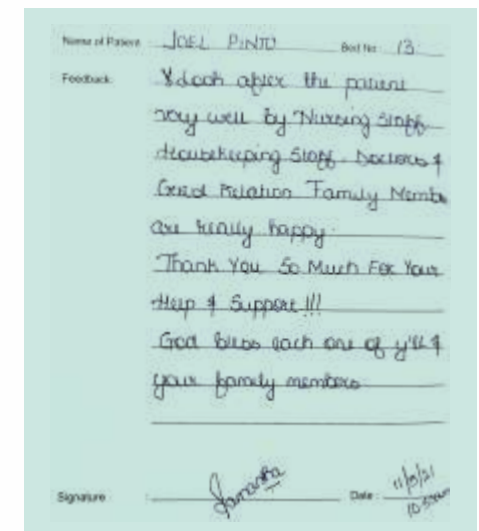 Name of Patient JOEL PINTO Bed No: 13
Feedback: & Look after the patient
very well by Nursing Staff
Housekeeping Staff. Doctors &
Guest Relation Family Membe
are really happy.
Thank You So Much For Your
Help & Support !!!
God bless each one of y'll &
your family members
Signature : Samantha Date : 11/9/21